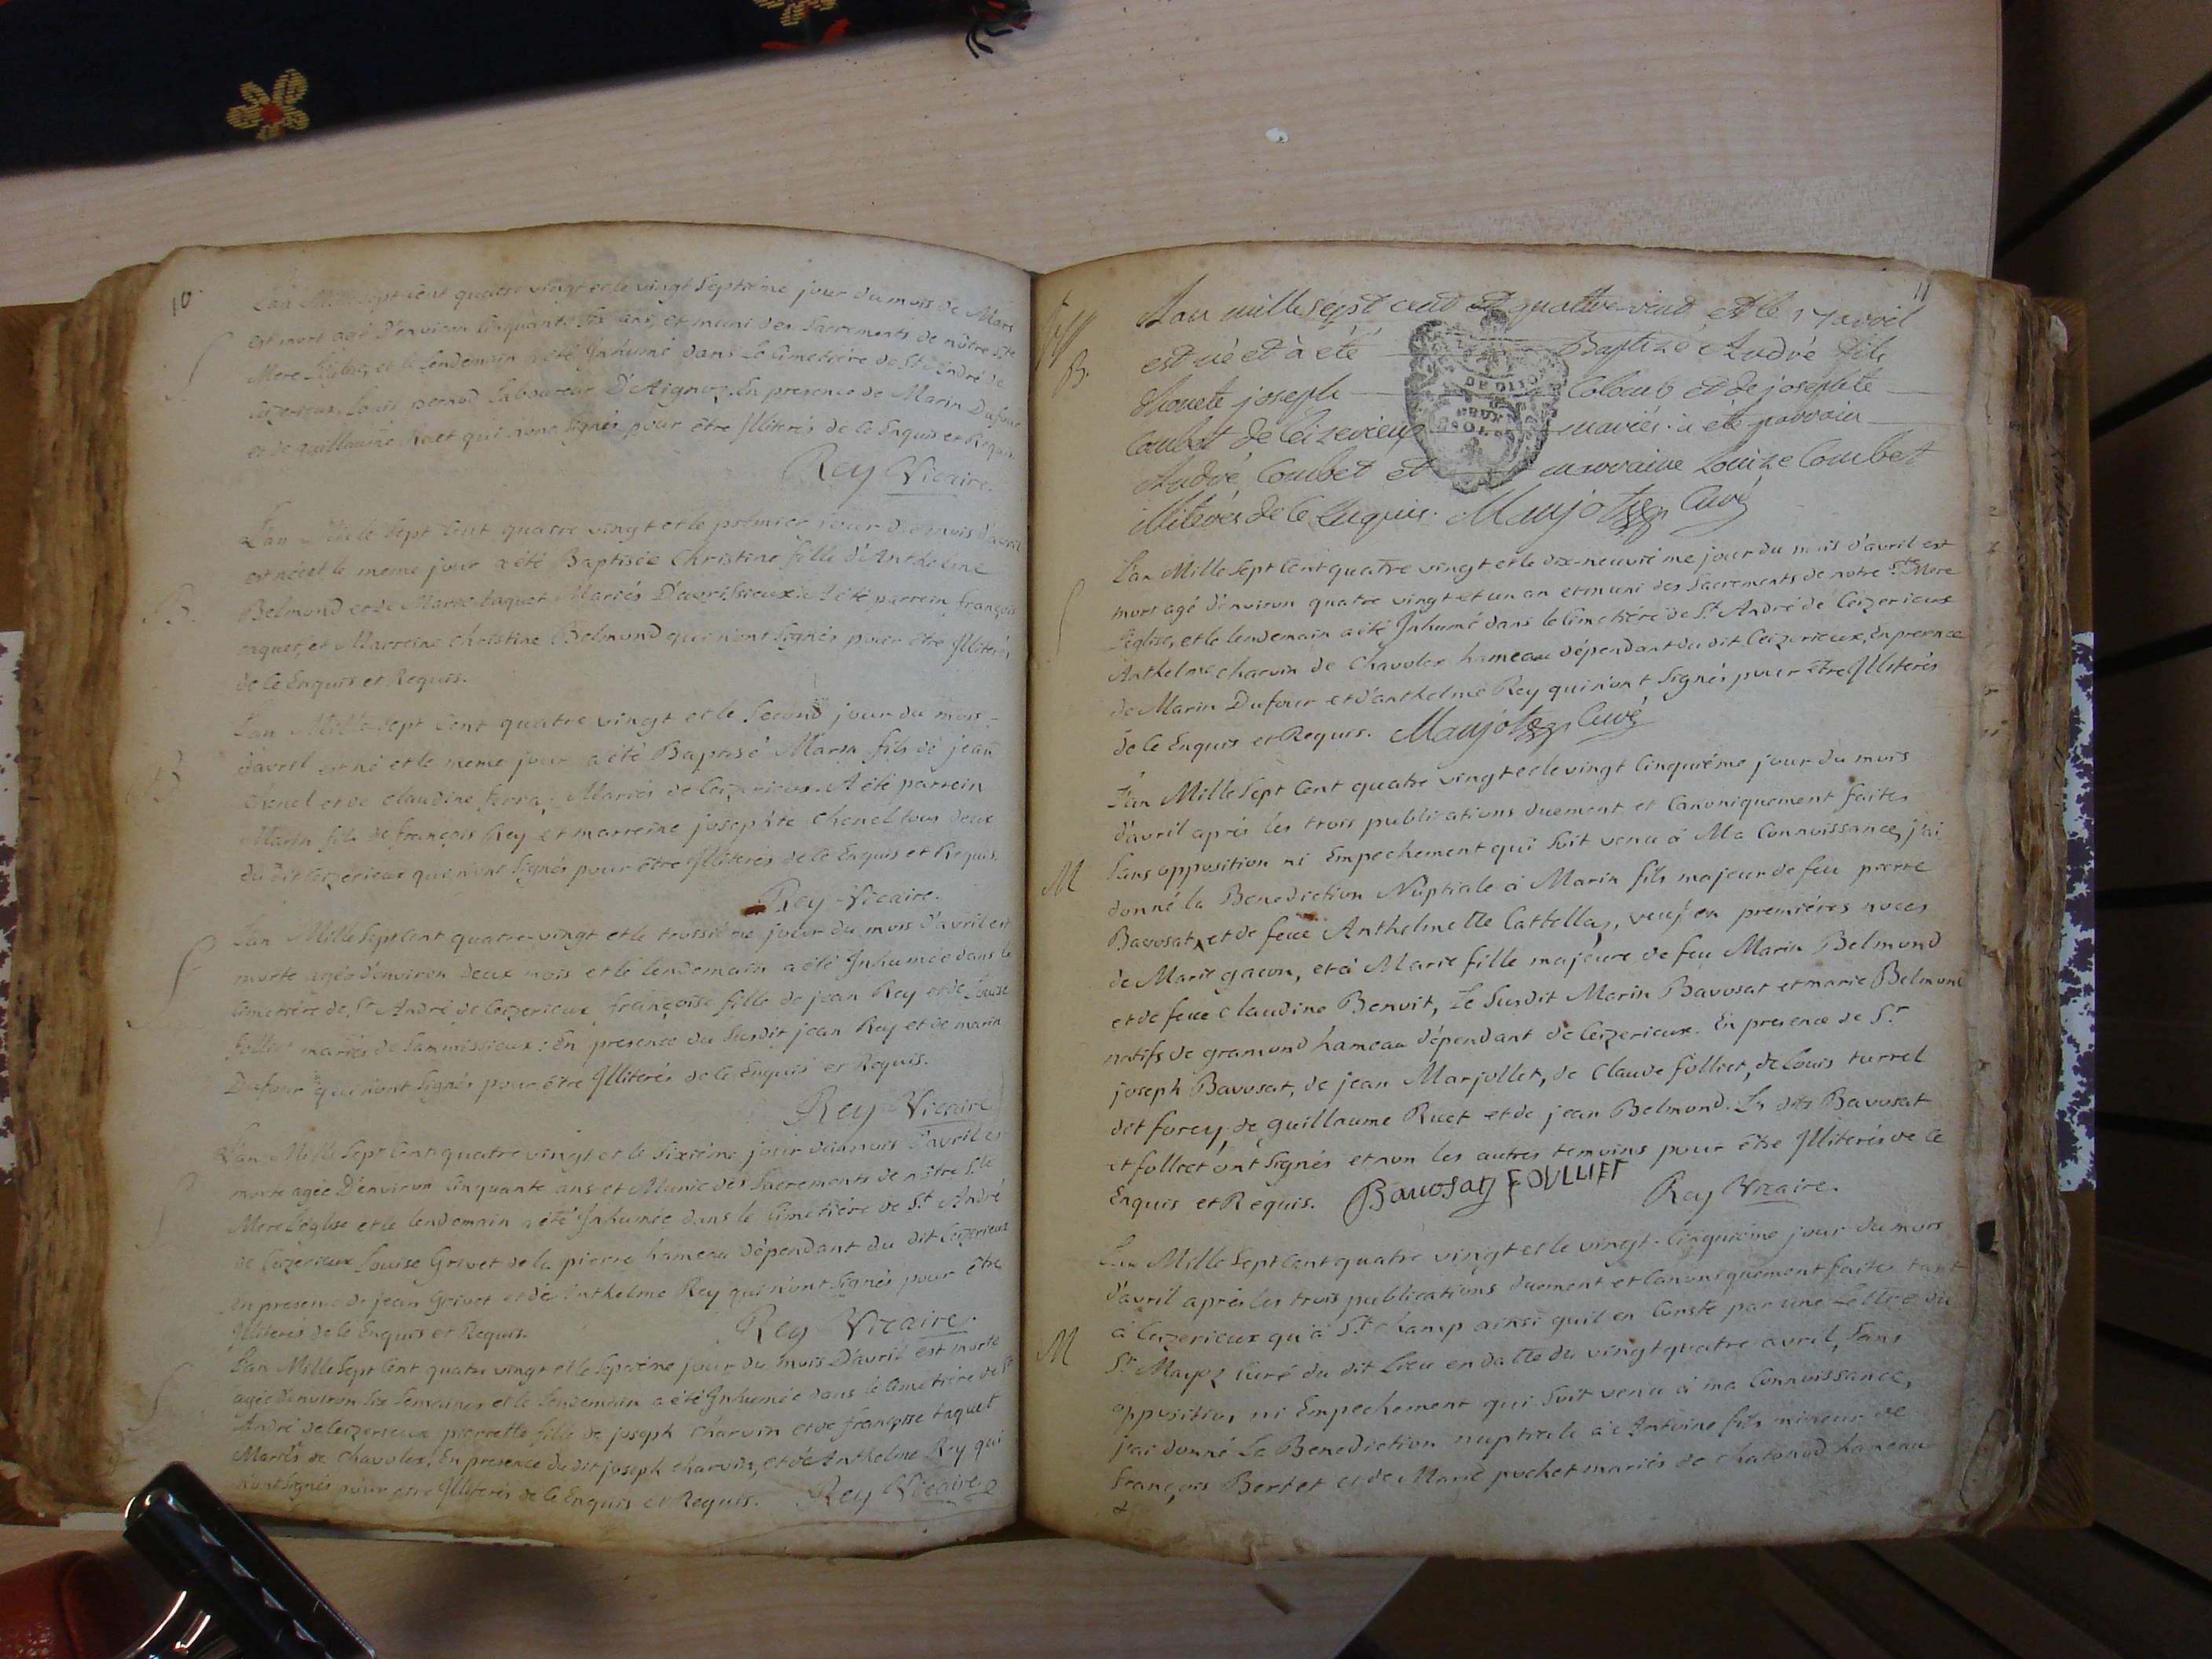 10
L'an Mille sept cent quatre vingt et le vingt septième jour du mois de Mars
est mort agé d'environ cinquante six ans, et muni des Sacrements de nôtre Ste
Mere l'église, et le lendemain a été Inhumé dans le Cimetière de St André de
Ceizerieux, Louis pernod laboureur D'Aignoz. En presence de Marin Dufour
et de guillaume Ruet qui n'ont signés pour être Illiterés de ce Enquis et Requis.
Rey Vicaire.
L'an Mille Sept Cent quatre vingt et le premier jour du mois d'avril
est née et le meme jour a été Baptisée Christine fille d'Anthelme
B. Belmond et de Marie taquet Mariés D'avrissieux. A été parrein françois
taquet, et Marreine Christine Belmond qui n'ont signés pour être Illiterés
de ce Enquis et Requis.
L'an Mille Sept Cent quatre vingt et le Second jour du mois
d'avril est né et le meme jour a été Baptisé Marin fils de jean
B Chenel et de claudine ferra; Mariés de Ceizerieux. A été parrein
Marin fils de françois Rey et marreine josephte Chenel tous deux
du dit Ceizerieux qui n'ont signés pour être Illiterés de ce Enquis et Requis.
Rey Vicaire.
L'an Mille Sept Cent quatre-vingt et le troisième jour du mois d'avril est
morte agée d'environ deux mois et le lendemain a été Inhumée dans le
cimetière de St André de Ceizerieux françoise fille de jean Rey et de Louise
folliet mariés de Sammissieux: En presence du Susdit jean Rey et de marin
Dufour qui n'ont signés pour être Illiterés de ce Enquis et Requis.
Rey Vicaire
L'an Mille Sept Cent quatre vingt et le Sixième jour du mois d'avril est
morte agée D'environ Cinquante ans et Munie des Sacrements de nôtre Ste
Mere L'église et le lendemain a été Inhumée dans le Cimetière de St André
de Ceizerieux Louise Grivet de la pierre hameau dépendant du dit Ceizerieux
En presence de jean Grivet et de Anthelme Rey qui n'ont signés pour être
Illiterés de ce Enquis et Requis. Rey Vicaire.
L'an Mille Sept Cent quatre vingt et le Septième jour du mois D'avril est morte
agée d'environ Six Semaines et le Lendemain a été Inhumée dans le Cimetière de St
André de Ceizerieux pierrette fille de joseph Charvin et de françoise taquet
Mariés de Chavoley, En presence du dit joseph charvin, et de Anthelme Rey qui
n'ont signés pour être Illiterés de ce Enquis et Requis. Rey Vicaire
11
L'an mille sept cent et quattre-vint et le 17 avril
B. est né et à été Baptizé André fils
d'honete joseph Colomb et de josephte
Combet de Ceizerieux mariés. à été parrain
André Combet et marraine Louize Combet
illiterés de ce Enquis. Maujot Curé
DE DIJON
DEUX
SOLS
L'an Mille Sept Cent quatre vingt et le dix-neuvième jour du mois d'avril est
mort agé d'environ quatre vingt et un an et muni des Sacrements de notre Ste Mere
l'église, et le lendemain a été Inhumé dans le Cimetière de St André de Ceizerieux
Anthelme charvin de Chavoley hameau dépendant du dit Ceizerieux, En presence
de Marin Dufour et d'anthelme Rey qui n'ont Signés pour être Illiterés
de ce Enquis et Requis. Maujot Curé
L'an Mille Sept Cent quatre vingt et le vingt Cinquième jour du mois
d'avril aprés les trois publications duement et Canoniquement faites
Sans opposition ni Empechement qui Soit venu à Ma Connoissance, j'ai
M donné la Benediction Nuptiale à Marin fils majeur de feu pierre
Bavosat, et de feue Anthelmette Cattella, veuf en premières noces
de Marie gacon, et à Marie fille majeure de feu Marin Belmond
et de feue Claudine Benoit, Le Susdit Marin Bavosat et marie Belmond
natifs de gramond hameau dépendant de Ceizerieux. En presence de Sr
joseph Bavosat, de jean Marjollet, de Claude folliet, de Louis turrel
dit forey, de guillaume Ruet et de jean Belmond. Les dits Bavosat
et folliet ont Signés et non les autres temoins pour être Illiterés de ce
Enquis et Requis. Bavosat FOULLIET Rey Vicaire.
L'an Mille Sept Cent quatre vingt et le vingt-Cinquième jour du mois
d'avril aprés les trois publications duement et Canoniquement faites tant
à Ceizerieux qu'à St champ ainsi quil en Conste par une Lettre du
M Sr Mayoz Curé du dit Lieu en datte du vingt quatre avril, Sans
opposition ni Empechement qui Soit venu à ma Connoissance,
j'ai donné La Benediction nuptiale à Antoine fils mineur de
françois Bertet et de Marie pochet mariés de chatonod hameau